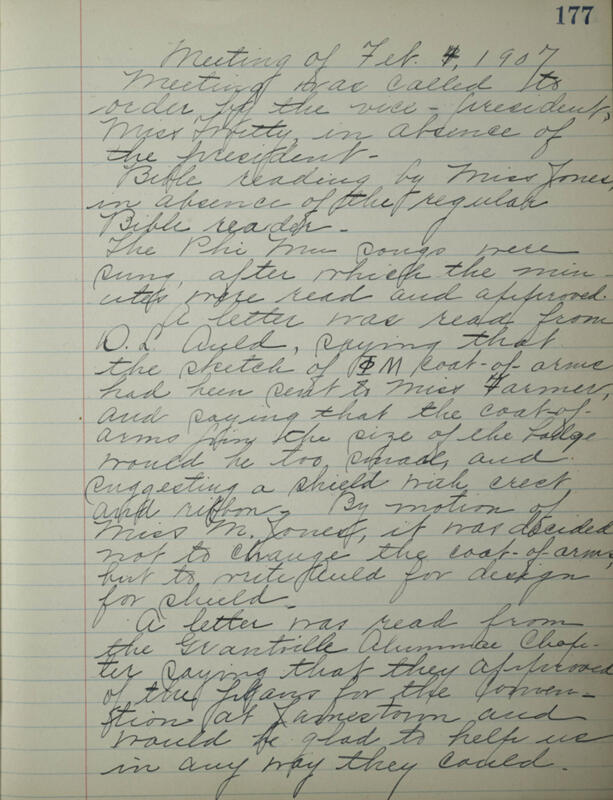 177
Meeting of Feb. 4, 1907
Meeting was called to
order by the vice-president,
Miss Twitty, in absence of
the president-
Bible reading by Miss Jones
in absence of the regular
Bible reader.
The Phi Mu songs were
sung, after which the min
utes were read and approved.
A letter was read from
D. L. Auld, saying that
the sketch of ΦM coat-of-arms
had been sent to Miss Farmer,
and saying that the coat-of-
arms the size of the badge
would be too small, and
suggesting a shield with crest
and ribbon. By motion of
Miss M. Jones, it was decided
not to change the coat-of-arms,
but to write Auld for design
for shield.
A letter was read from
the Grantville Alumnae Chap-
ter saying that they approved
of the plans for the Conven-
tion at Jamestown and
would be glad to help us
in any way they could.